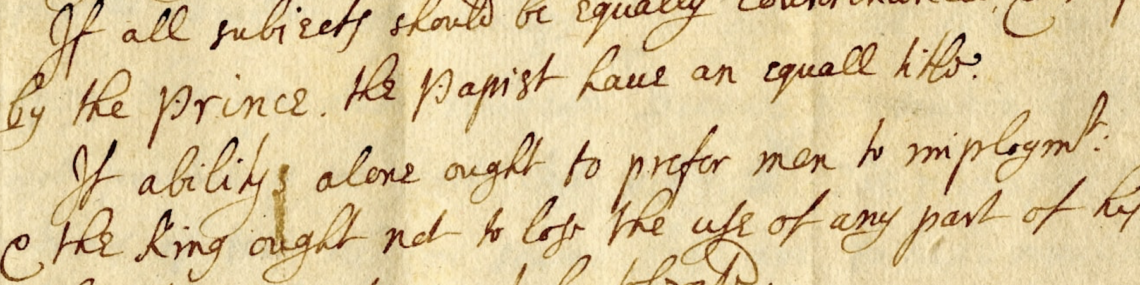 If all subiects should be equally
by the Prince. the Papist have an equall title.
If abilitys alone ought to prefer men to imploymt:
& the King ought not to lose the use of any part of his